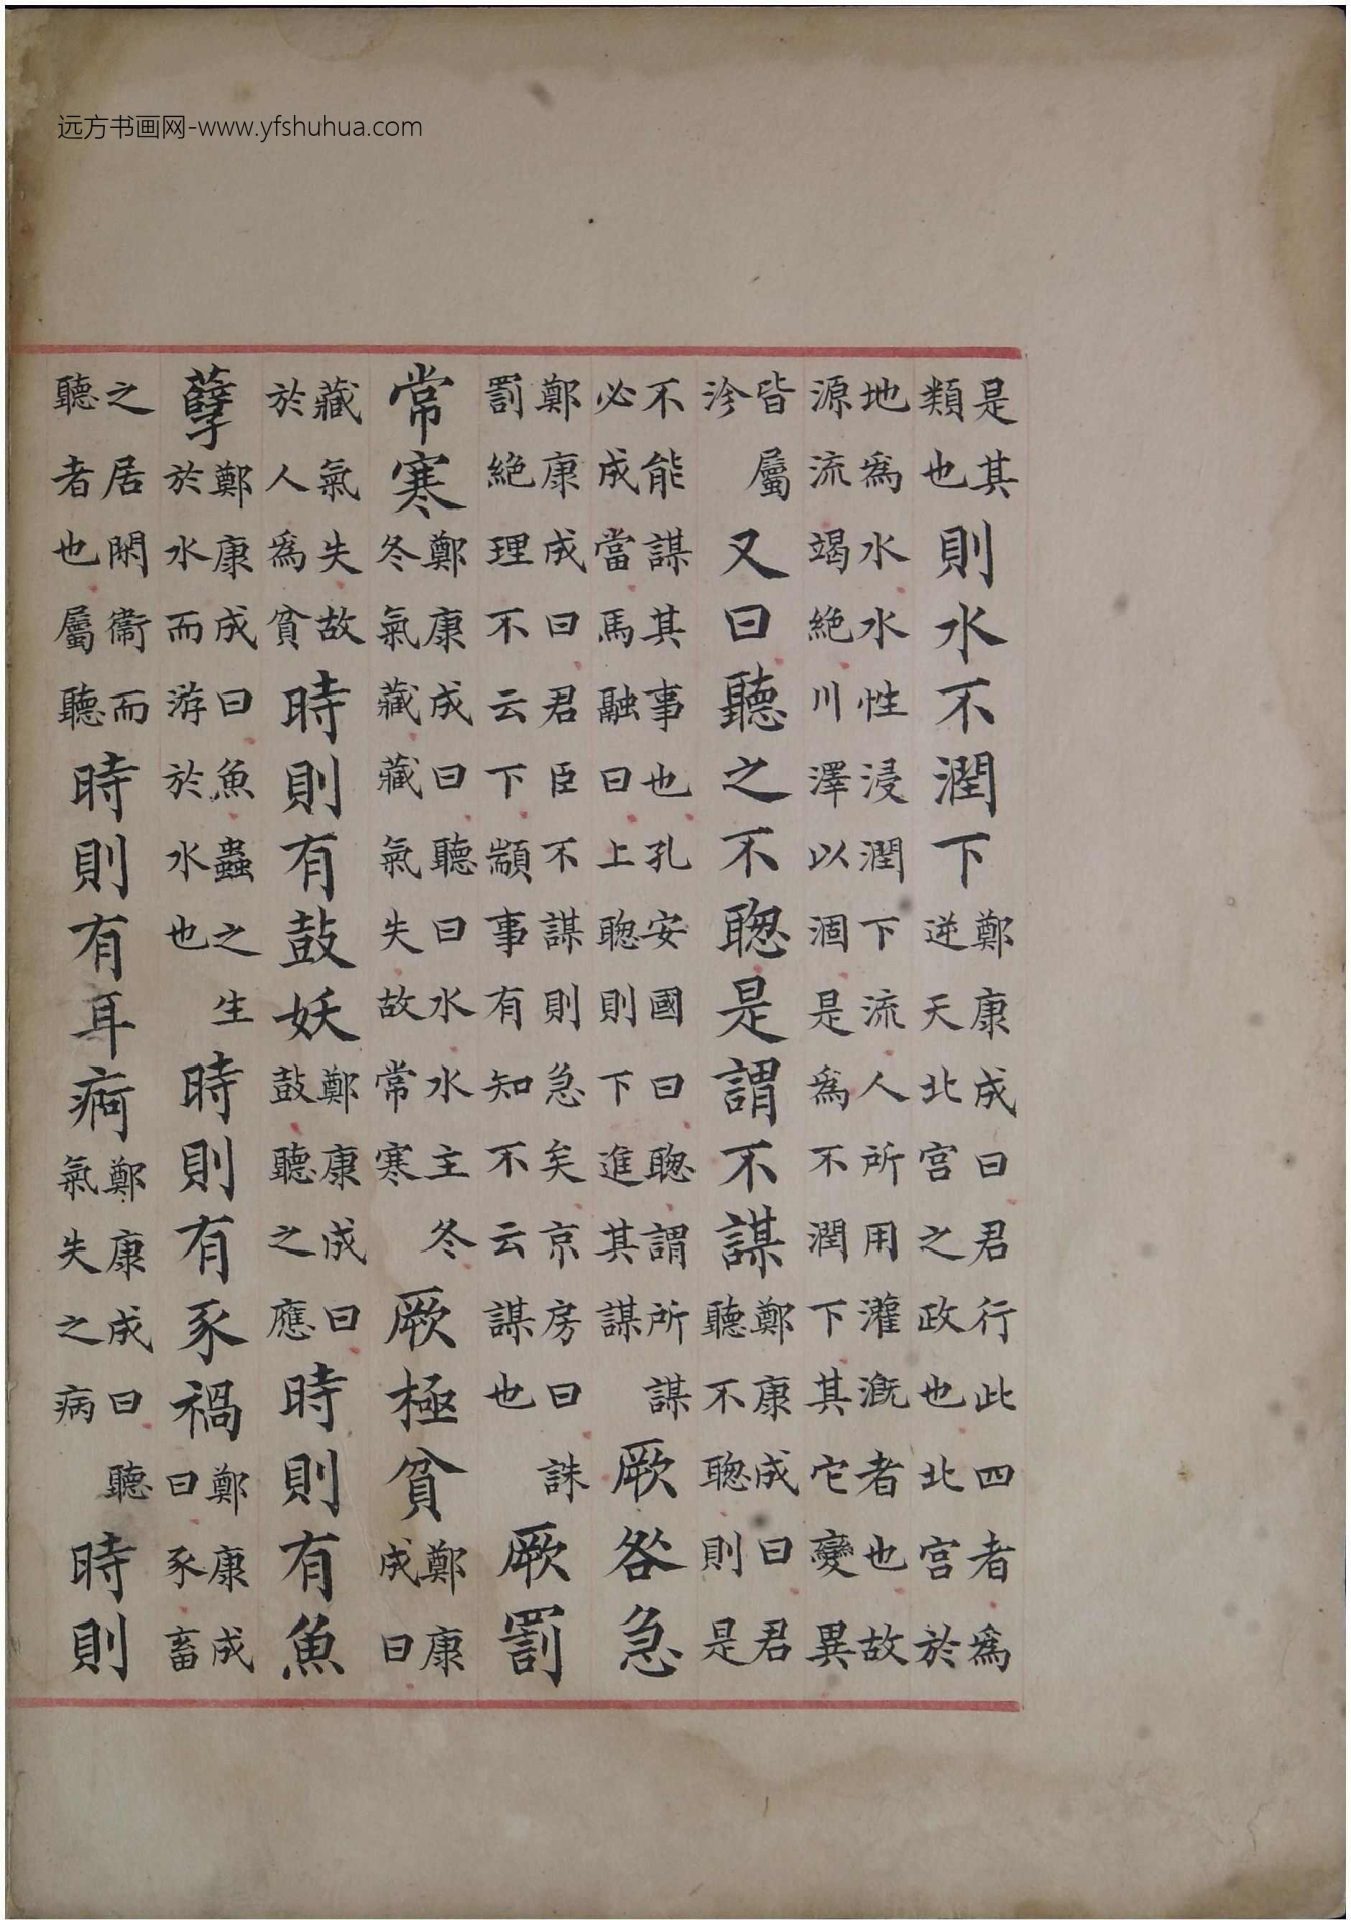 远方书画网-www.yfshuhua.com
是其類也則水不潤下鄭康成曰君行此四者爲逆天北宮之政也北宮於
地爲水水性浸潤下流人所用灌漑者也故源流竭絶川澤以涸是爲不潤下其它變異
皆屬沴又曰聽之不聦是謂不謀鄭康成曰君聽不聦則是
不能謀其事也孔安國曰聦謂所謀必成當馬融曰上聦則下進其謀厥咎急
鄭康成曰君臣不謀則急矣京房曰誅罰絶理不云下顓事有知不云謀也厥罰
常寒鄭康成曰聽曰水水主冬冬氣藏藏氣失故常寒厥極貧鄭康成曰
藏氣失故於人爲貧時則有鼓妖鄭康成曰鼓聽之應時則有魚
孽鄭康成曰魚蟲之生於水而游於水也時則有豕禍鄭康成曰豕畜
之居閑衞而聽者也屬聽時則有耳痾鄭康成曰聽氣失之病時則